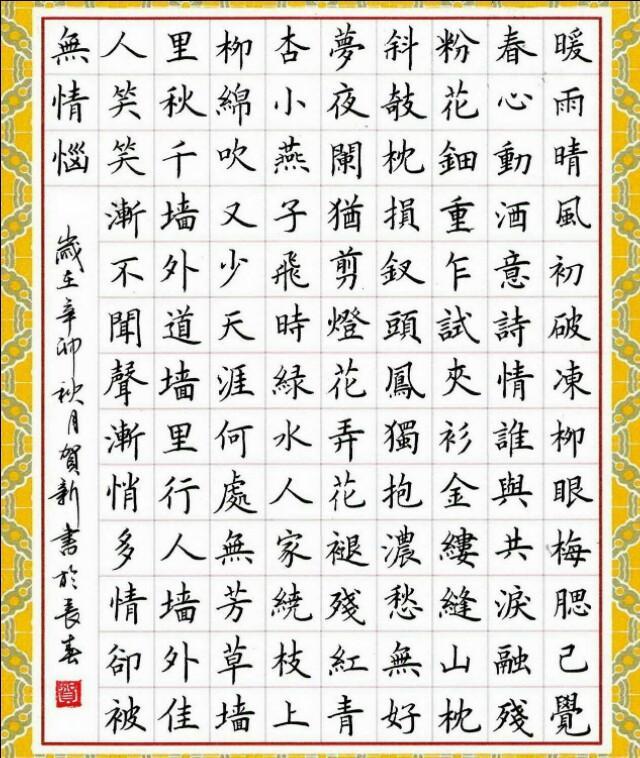 暖雨晴風初破凍柳眼梅腮已覺
春心動酒意詩情誰與共淚融殘
粉花鈿重乍試夾衫金縷縫山枕
斜敧枕損釵頭鳳獨抱濃愁無好
夢夜闌猶剪燈花弄花褪殘紅青
杏小燕子飛時綠水人家繞枝上
柳綿吹又少天涯何處無芳草墙
里秋千墙外道墙里行人墙外佳
人笑笑漸不聞聲漸悄多情卻被
無情惱
歲在辛卯秋月賀新書於長春